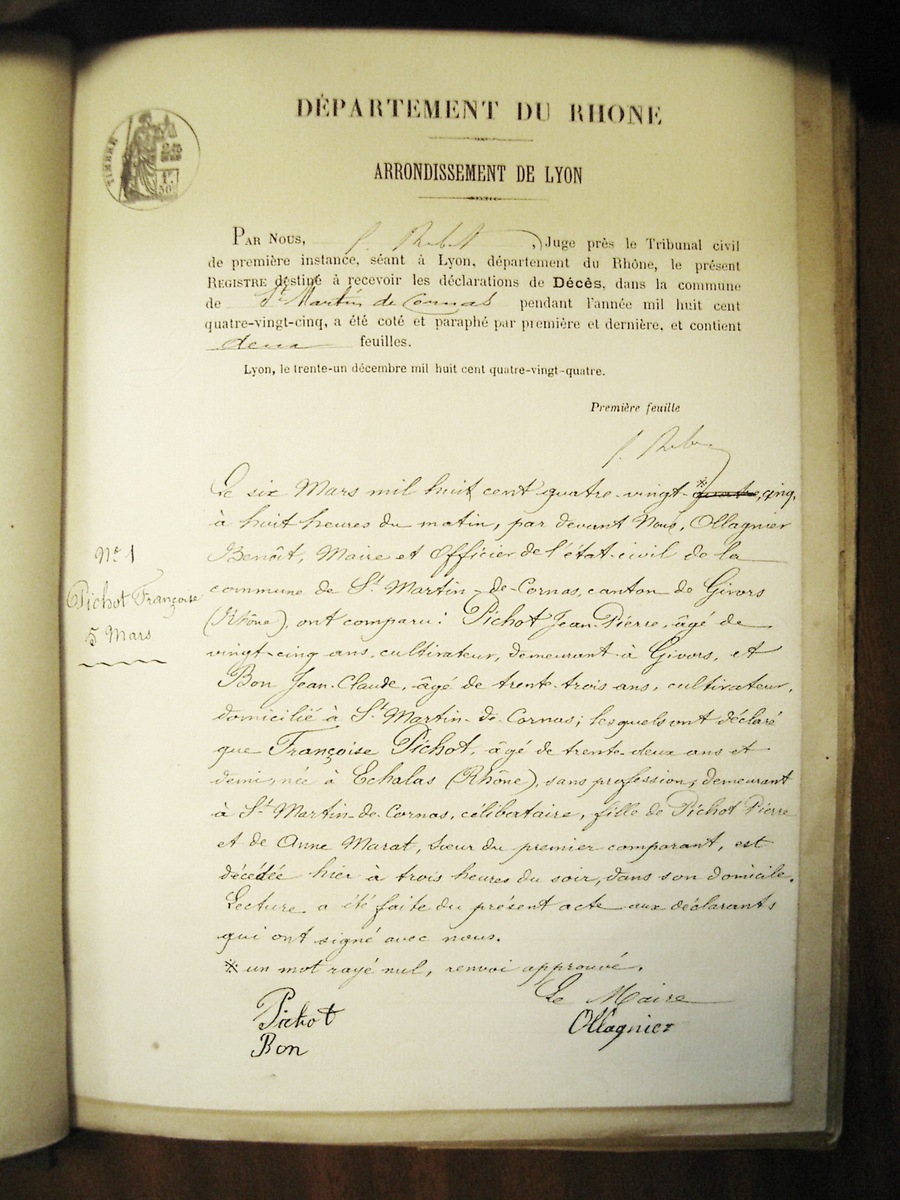 DÉPARTEMENT DU RHONE
TIMBRE
ARRONDISSEMENT DE LYON
PAR NOUS, , Juge près le Tribunal civil
de première instance, séant à Lyon, département du Rhône, le présent
REGISTRE destiné à recevoir les déclarations de Décès, dans la commune
de St Martin de Cornas pendant l'année mil huit cent
quatre-vingt-cinq, a été coté et paraphé par première et dernière, et contient
deux feuilles.
Lyon, le trente-un décembre mil huit cent quatre-vingt-quatre.
Première feuille
Le six Mars mil huit cent quatre-vingt-quatre, cinq,
à huit heures du matin, par devant Nous, Ollagnier
Benoît, Maire et Officier de l'état-civil de la
commune de St Martin-de-Cornas, canton de Givors
(Rhône), ont comparu: Pichot Jean-Pierre, âgé de
vingt-cinq ans, cultivateur, demeurant à Givors, et
Bon Jean-Claude, âgé de trente-trois ans, cultivateur,
domicilié à St Martin-de-Cornas; lesquels ont déclaré
que Françoise Pichot, âgé de trente-deux ans et
demi, née à Echalas (Rhône), sans profession, demeurant
à St Martin-de-Cornas, célibataire, fille de Pichot Pierre
et de Anne Marat, sœur du premier comparant, est
décédée hier à trois heures du soir, dans son domicile.
Lecture a été faite du présent acte aux déclarants
qui ont signé avec nous.
※ un mot rayé nul, renvoi approuvé.
Le Maire
Pichot
Ollagnier
Bon
No 1
Pichot Françoise
5 Mars